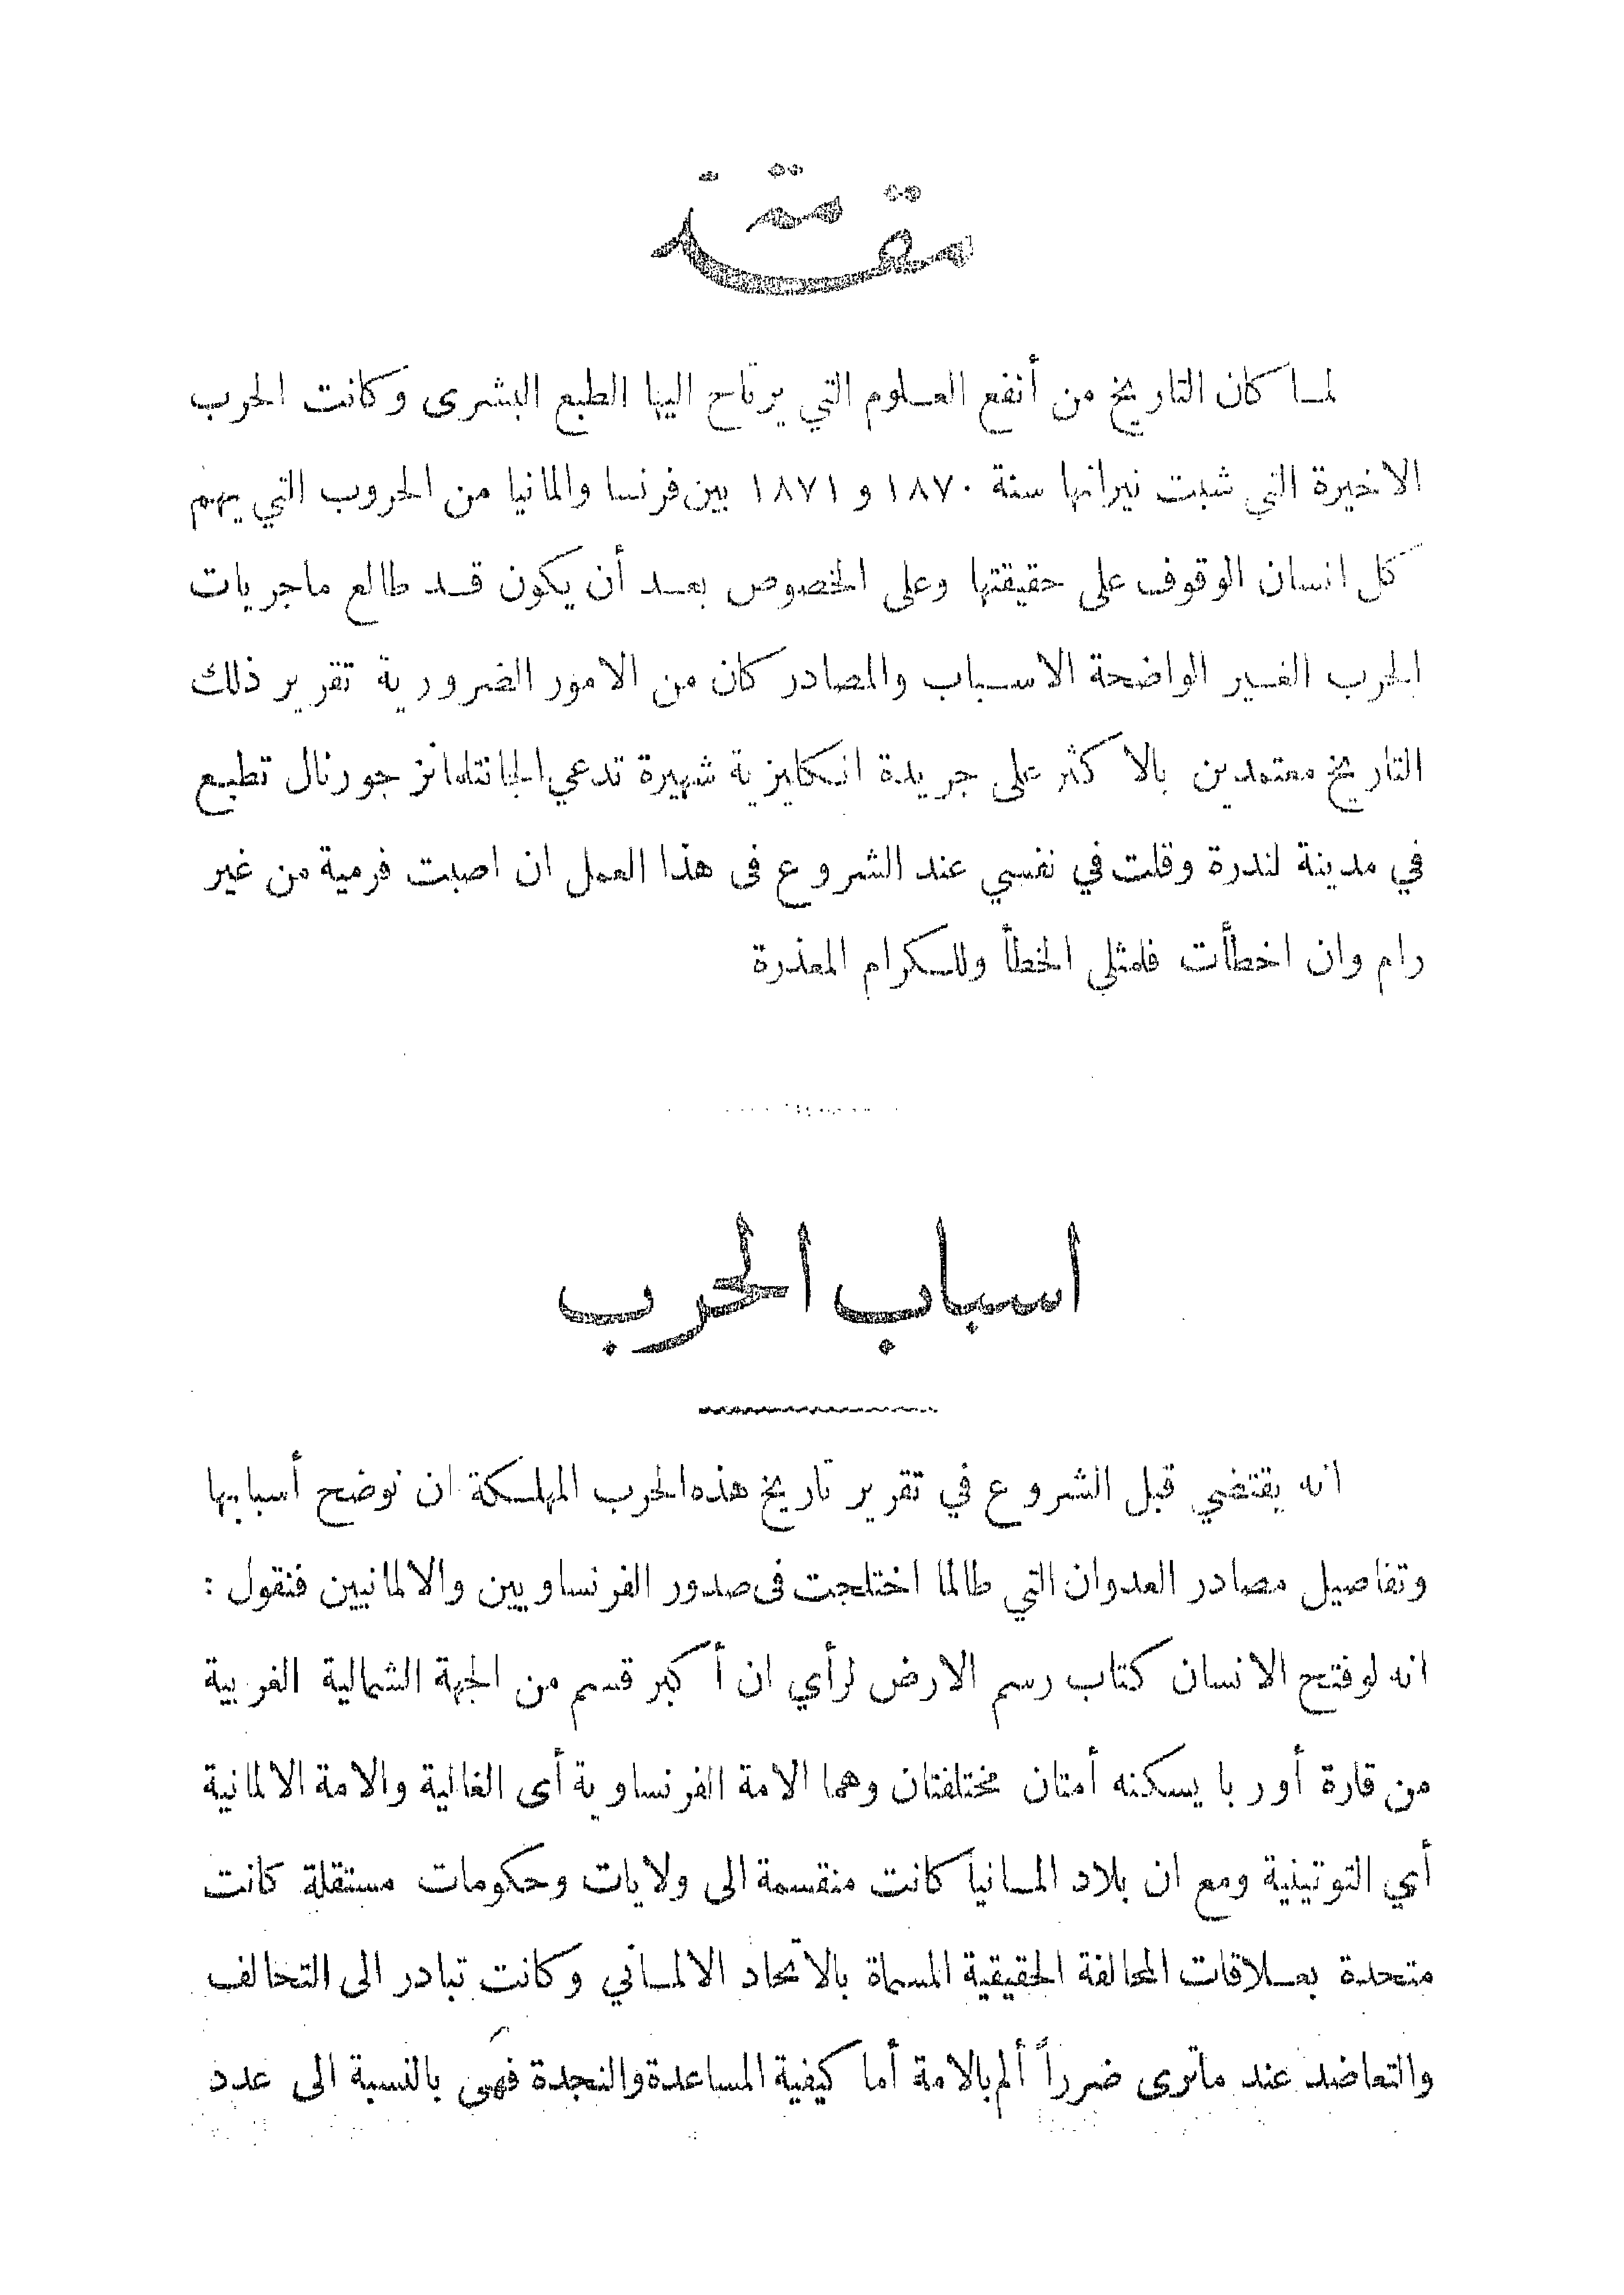 مقدمة
لما كان التاريخ من أنفع العلوم التي يرتاح اليها الطبع البشرى وكانت الحرب
الاخيرة التي شبت نيرانها سنة ١٨٧٠ و ١٨٧١ بين فرنسا والمانيا من الحروب التي يهم
كل انسان الوقوف على حقيقتها وعلى الخصوص بعد أن يكون قد طالع ماجريات
الحرب الغير الواضحة الاسباب والمصادر كان من الامور الضرورية تقرير ذلك
التاريخ معتمدين بالاكثر على جريدة انكليزية شهيرة تدعي الجانتلمانز جورنال تطبع
في مدينة لندرة وقلت في نفسي عند الشروع فى هذا العمل ان اصبت فرمية من غير
رام وان اخطأت فلمثلي الخطأ وللكرام المعذرة
اسباب الحرب
انه يقتضي قبل الشروع في تقرير تاريخ هذه الحرب المهلكة ان نوضح أسبابها
وتفاصيل مصادر العدوان التي طالما اختلجت فى صدور الفرنساويين والالمانيين فنقول :
انه لوفتح الانسان كتاب رسم الارض لرأي ان أكبر قسم من الجهة الشمالية الغربية
من قارة أوربا يسكنه أمتان مختلفتان وهما الامة الفرنساوية أى الغالية والامة الالمانية
أي التوتينية ومع ان بلاد المانيا كانت منقسمة الى ولايات وحكومات مستقلة كانت
متحدة بعلاقات المحالفة الحقيقية المسماة بالاتحاد الالماني وكانت تبادر الى التحالف
والتعاضد عند ماترى ضرراً ألم بالامة أما كيفية المساعدة والنجدة فهى بالنسبة الى عدد